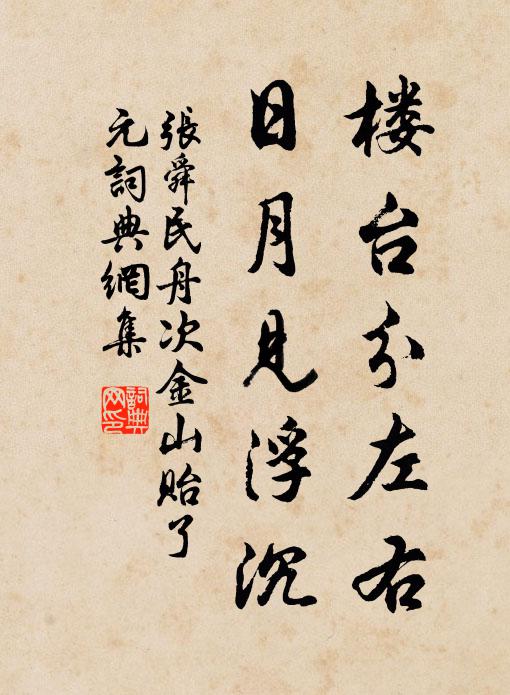 楼台分左右
日月見浮沉
張舜民舟次金山貽了
元詞典網集
詞典
网印